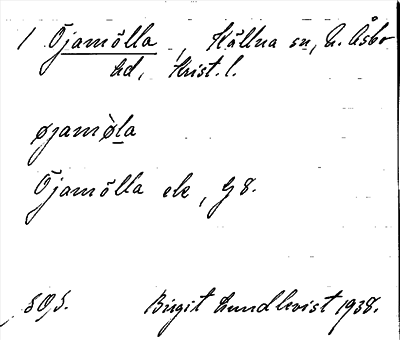 1 Öjamölla, Källna sn, N. Åsbo
hd, Krist. l.
øjamø̀la
Öjamölla ek, G8.
SOS.
Birgit Lundkvist 1938.